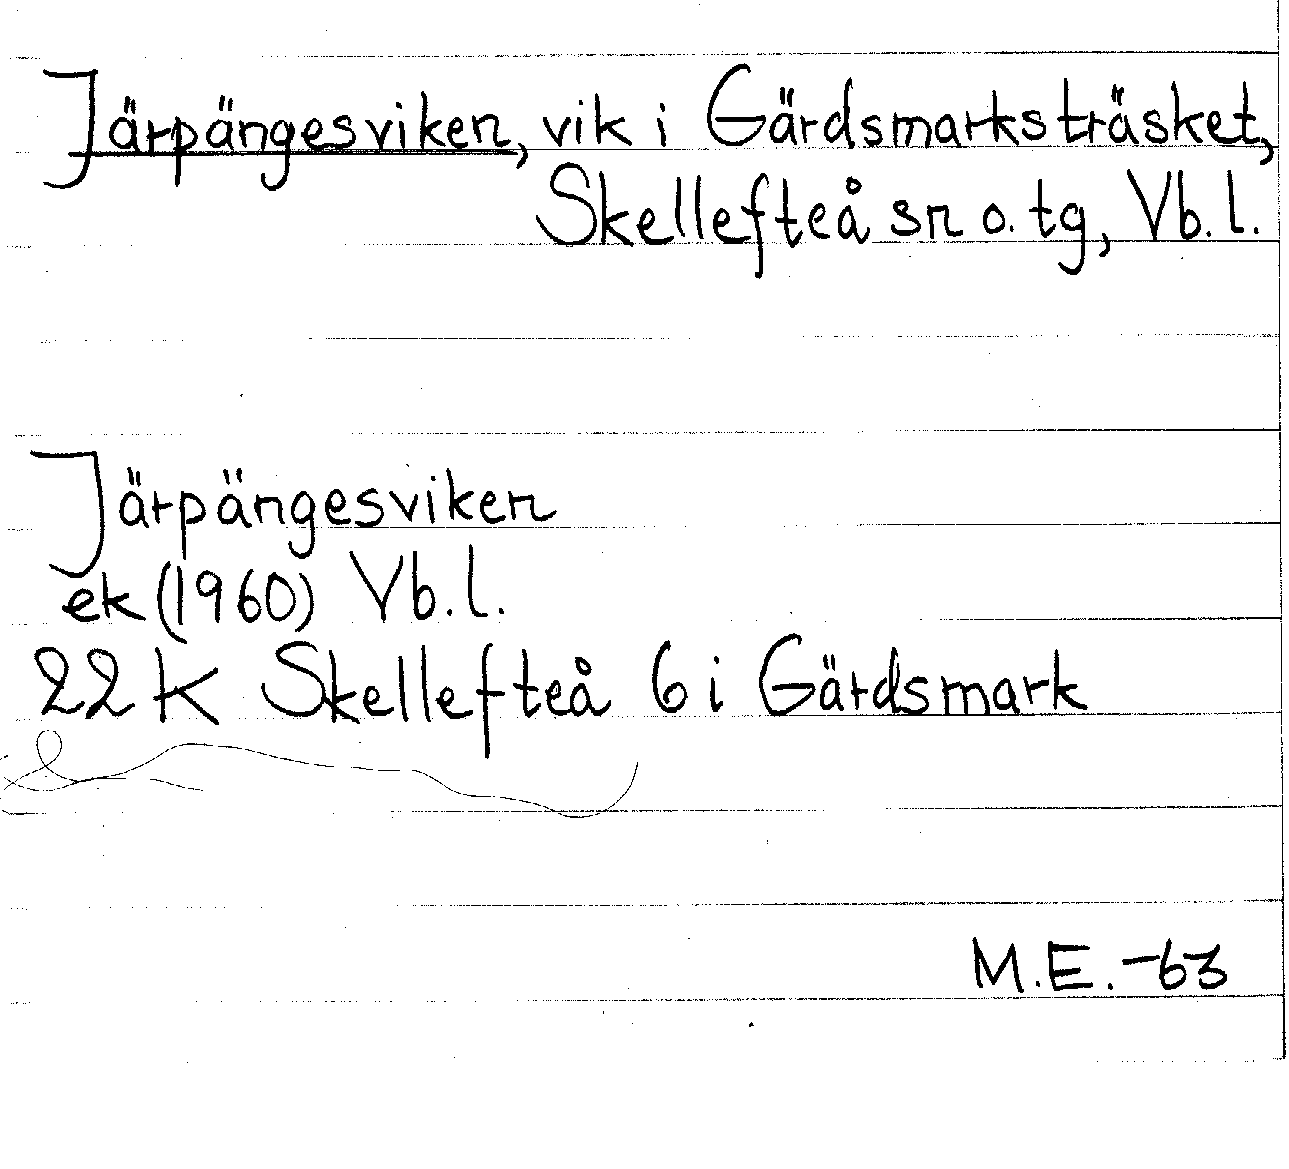 Järpängesviken, vik i Gärdsmarksträsket,
Skellefteå sn o. tg, Vb. l.
Järpängesviken
ek (1960) Vb. l.
22 K Skellefteå 6 i Gärdsmark
M.E. -63